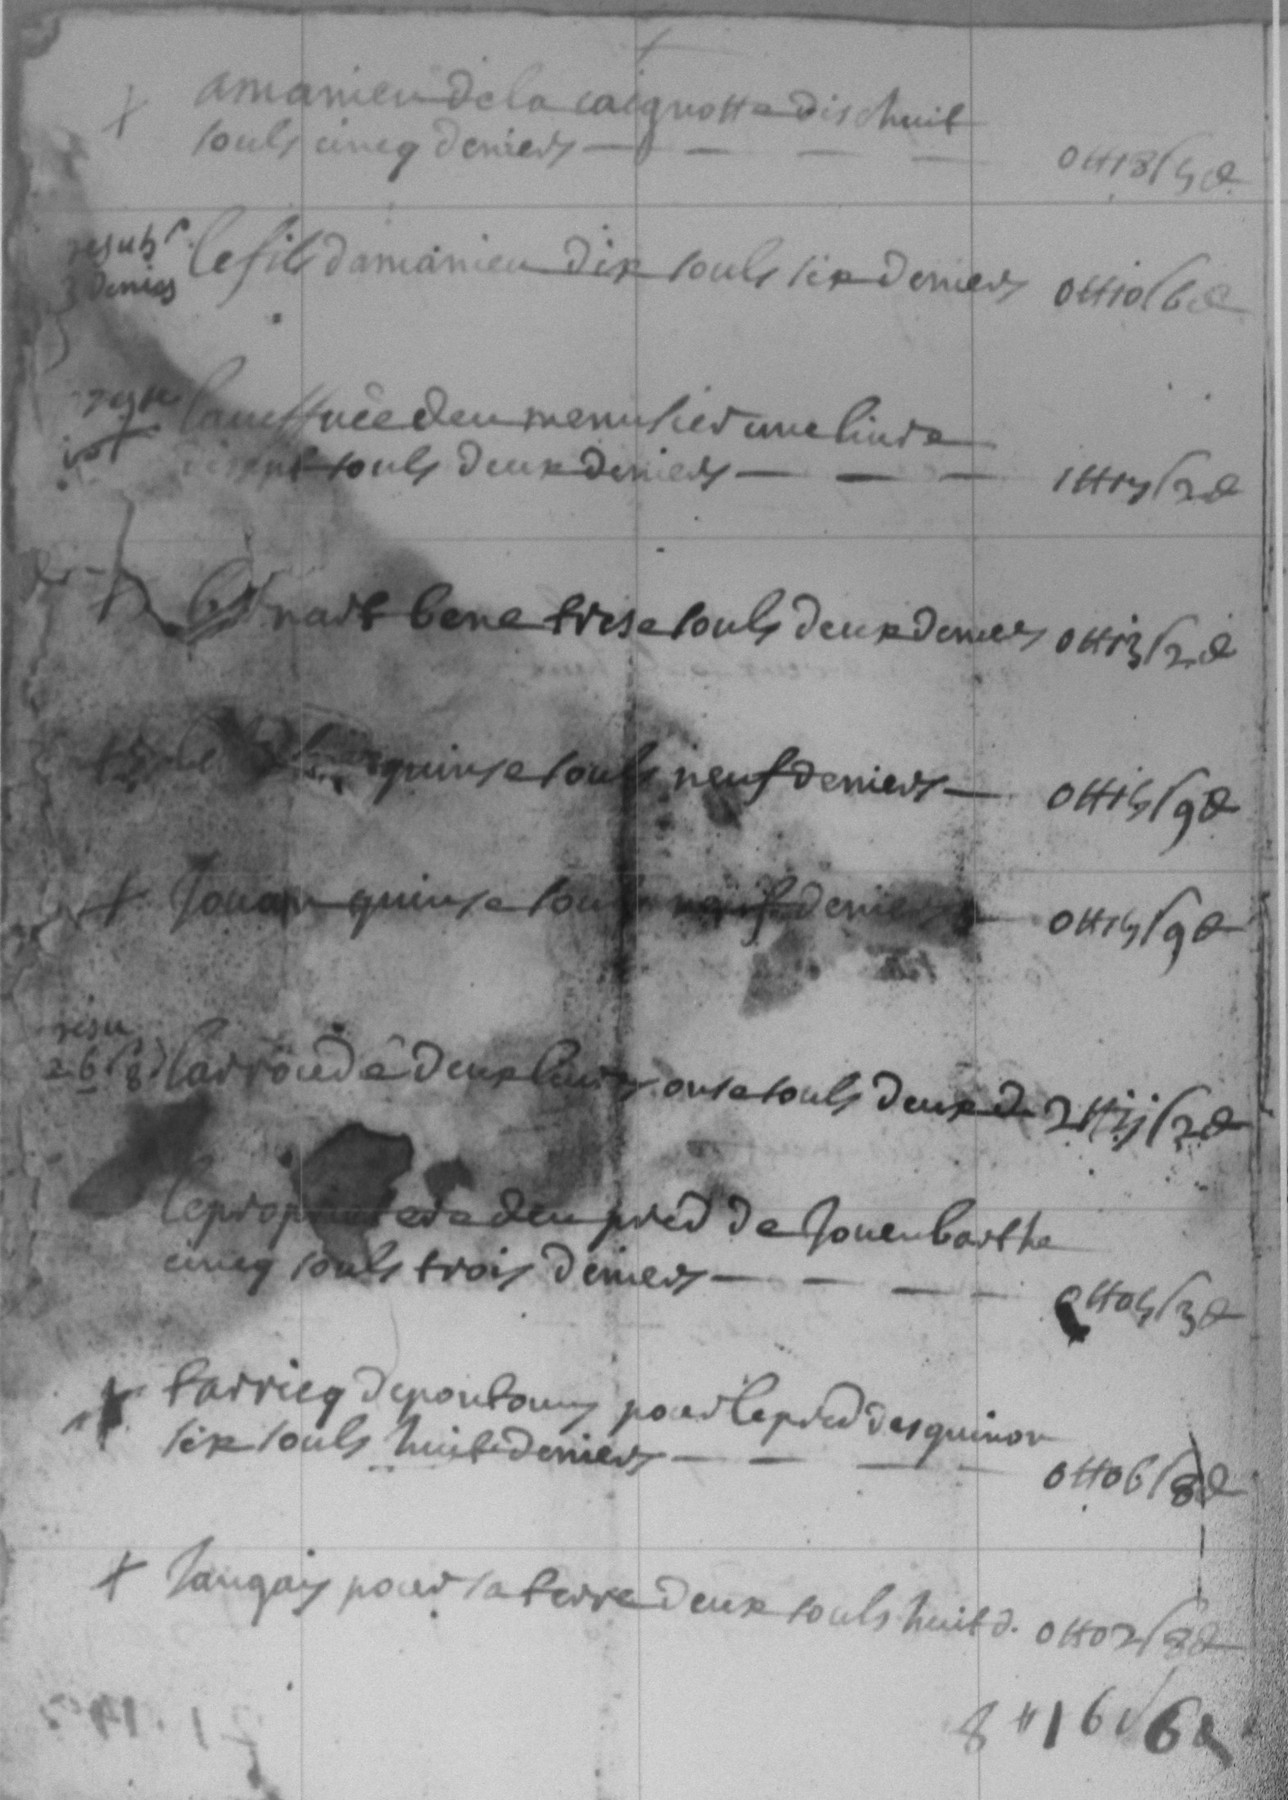 amanieu de la caignotte dischuit
souls cincq deniers — — — — 0 ʰ 18 ſ 5 d
resu 5 ſ
3 deniers
le fils damanieu dix souls six deniers 0 ʰ 10 ſ 6 d
resu
la neffuée deu menusier une liure
souls deux deniers — — — 1 ʰ 17 ſ 2 d
bernart bene trese souls deux deniers 0 ʰ 13 ſ 2 d
quinse souls neuf deniers — 0 ʰ 15 ſ 9 d
Jouan quinse souls neuf deniers — 0 ʰ 15 ſ 9 d
resu
26 ſ 8 d
larroudé deux liures onse souls deux d. 2 ʰ jj ſ 2 d
le proprietere deu pred de Jouenbarthe
cincq souls trois deniers — — — — 0 ʰ 05 ſ 3 d
tarricq depontous pour le pred desquinon
six souls huit deniers — — — — 0 ʰ 06 ſ 8 d
Jangais pour sa terre deux souls huit d. 0 ʰ 02 ſ 8 d
8 ʰ 16 ſ 6 d